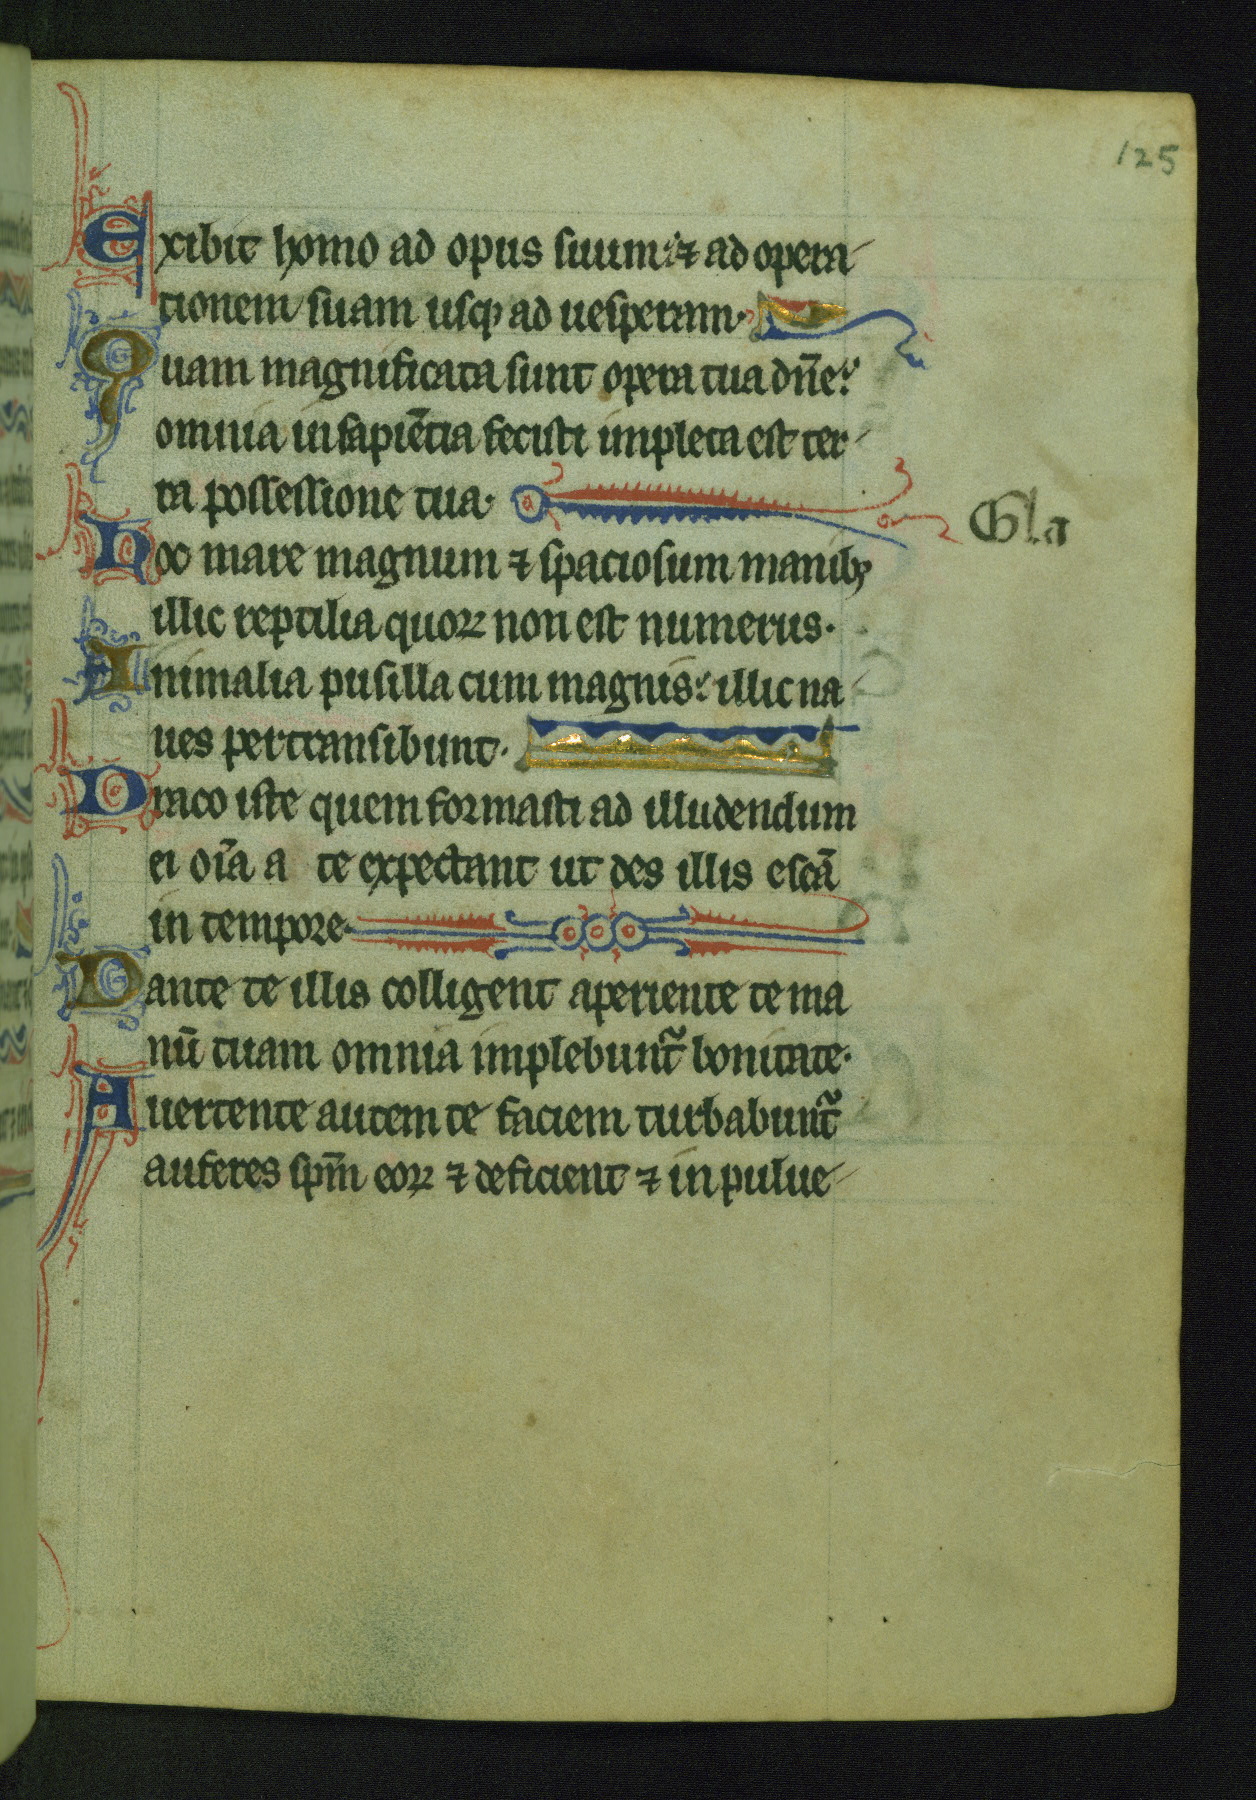 125
Exibit homo ad opus suum: ⁊ ad opera
tionem suam usqꝫ ad uesperam·
Quam magnificata sunt opera tua dn̄e:
omnia in sapiēcia fecisti impleta est ter
ra possessione tua·
Gła
Hoc mare magnum ⁊ spaciosum manibꝫ
illic reptilia quoꝝ non est numerus·
Animalia pusilla cum magnis: illic na
ues pertransibunt·
Draco iste quem formasti ad illudendum
ei oīa a te expectant ut des illis escā
in tempore·
Dante te illis colligent aperiente te ma
nū tuam omnia implebunt᷑ bonitate·
Auertente autem te faciem turbabunt᷑
auferes sp̄m eoꝝ ⁊ deficient ⁊ in pulue